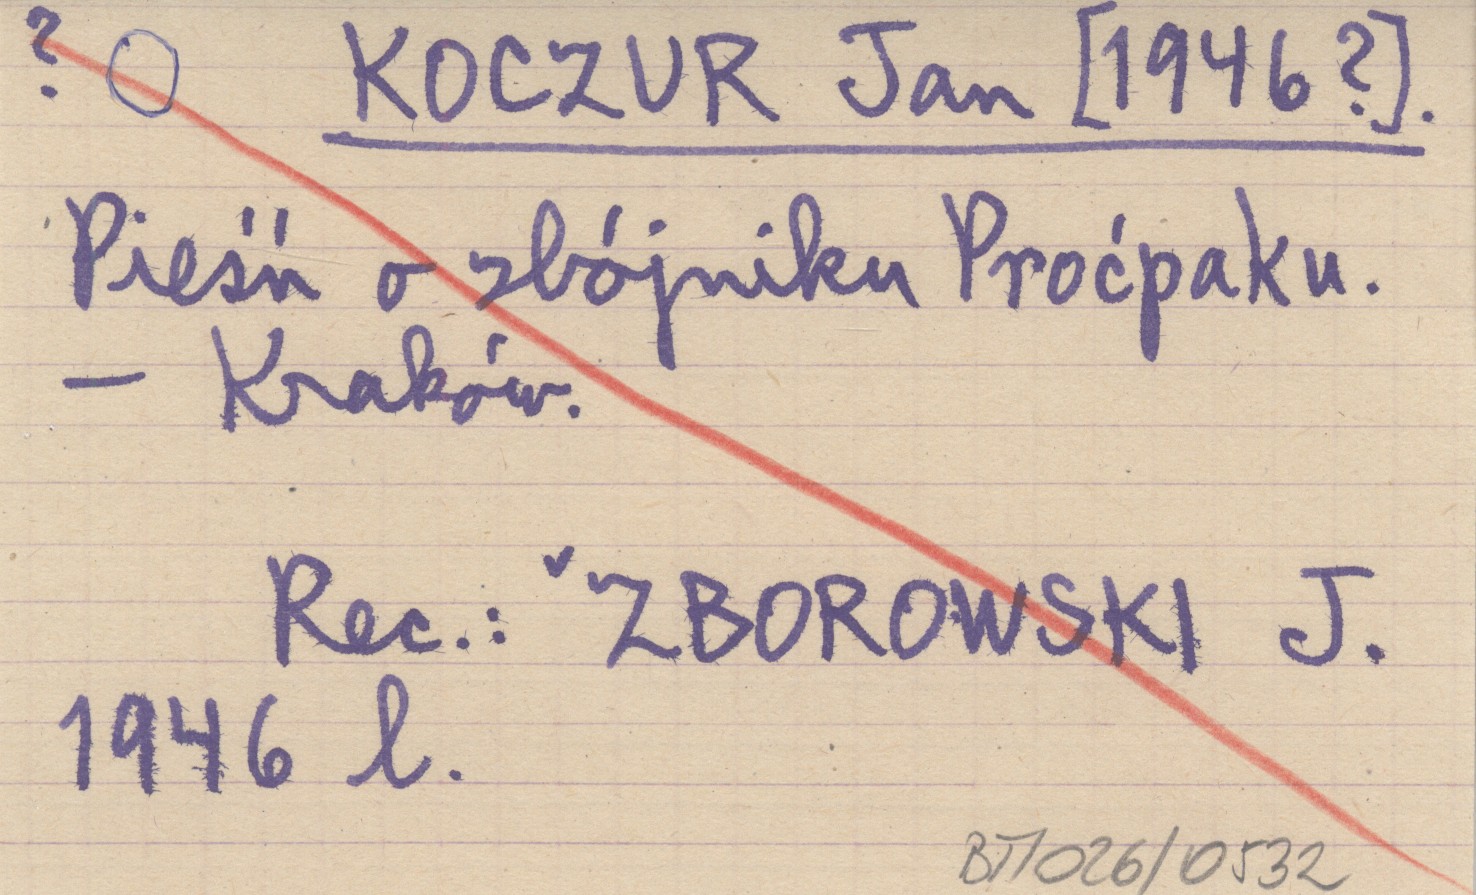 ? KOCZUR Jan [1946?].
Pieśń o zbójniku Proćpaku.
– Kraków.
Rec.: ZBOROWSKI J.
1946 l.
BT/026/0532